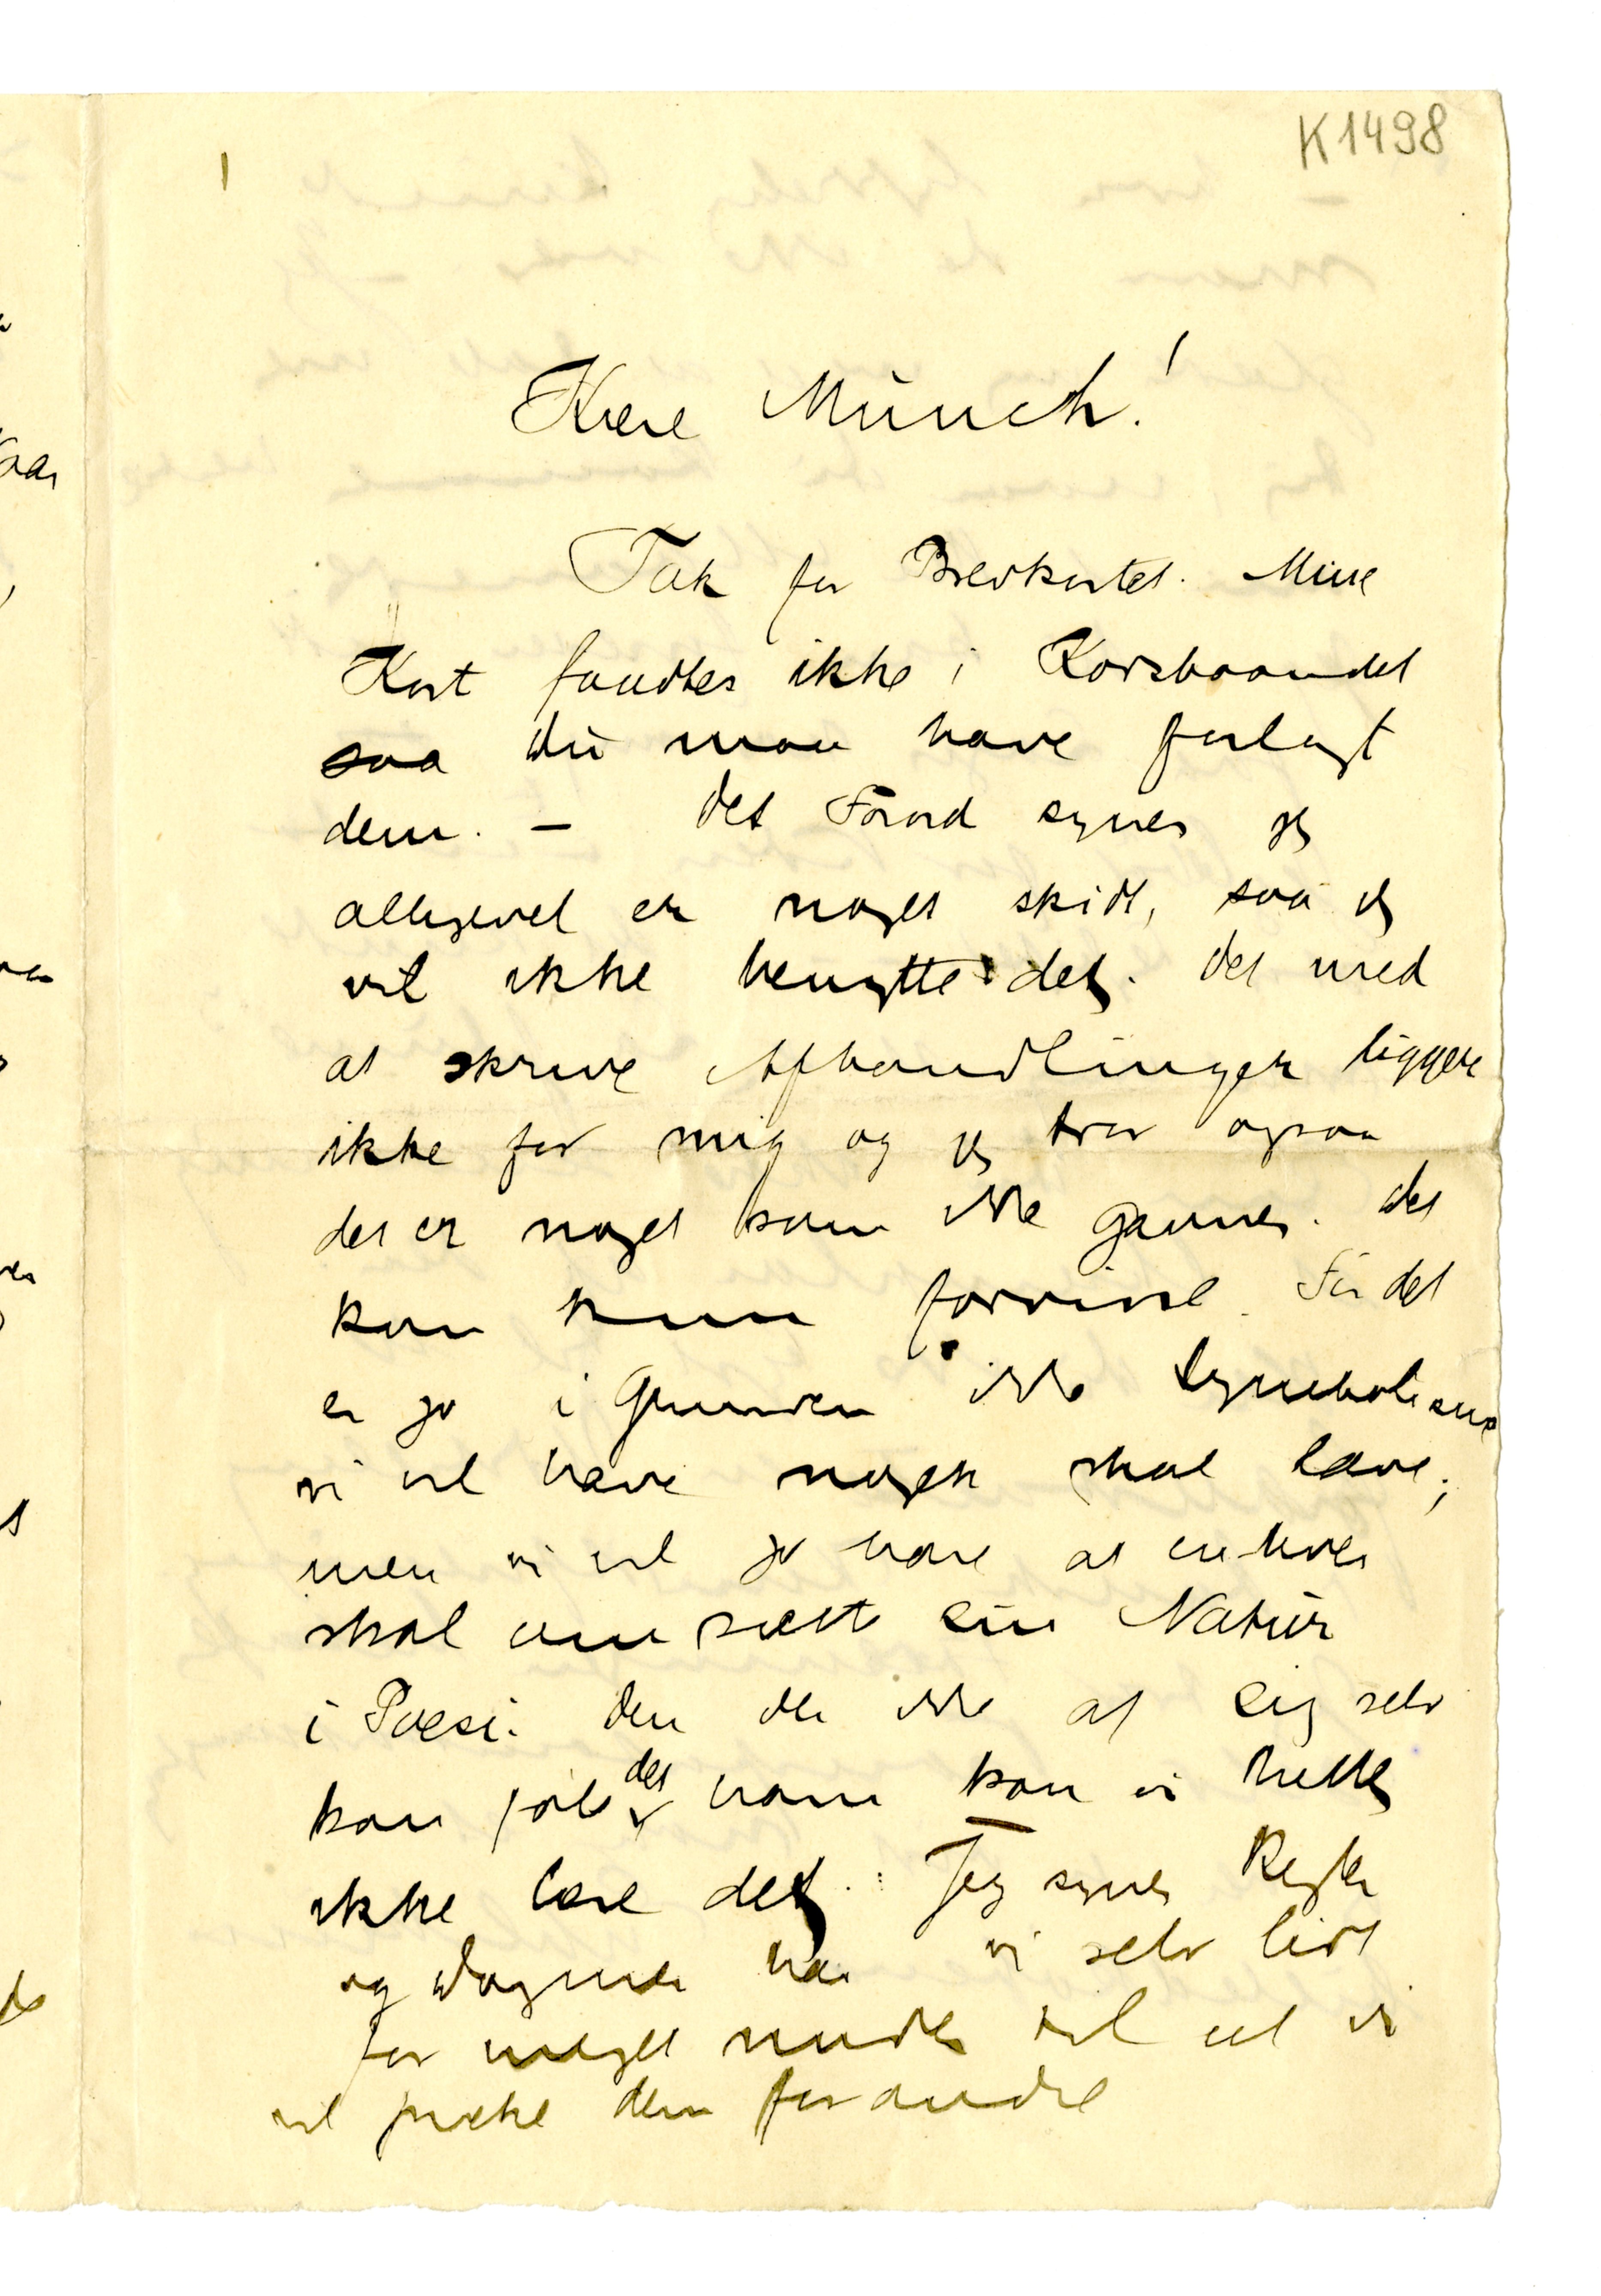 K1498
1
Kære Münch!
Tak for Brevkortet. Mine
Kort fandtes ikke i Korsbaandet
saa Du maa have forlagt
dem. — Det Forord synes jeg
alligevel er noget skidt, saa jeg
vil ikke benytte det. Det med
at skrive Afhandlinger ligger
ikke for mig og jeg tror ogsaa
det er noget som ikke gavner. Det
kan kun forvirre. For det
er jo i Grunden ikke Symbolisme
vi vil have nogen skal lave;
men vi vil jo have at enhver
skal omsætte sin Natur
i Poesi. Den der ikke af sig selv
kan føle det ham kan vi heller
ikke lære det. Jeg synes Regler
og Dogmer har vi selv lidt
for meget under til at vi
vil præke dem for andre